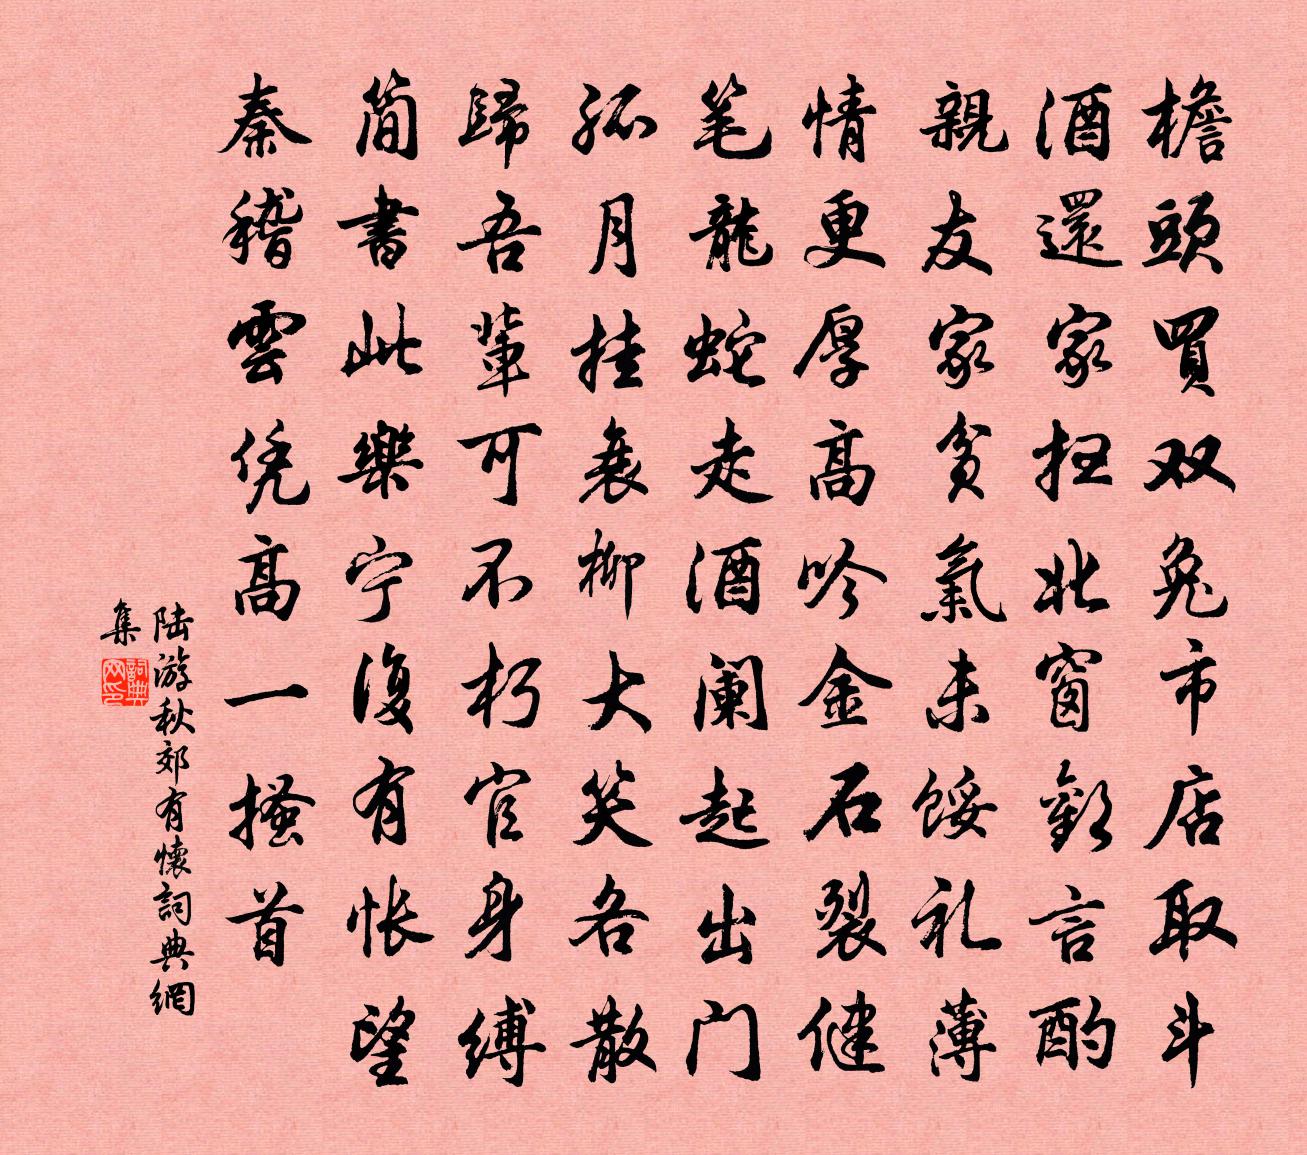 檐頭買双兔市店取斗
酒還家扫北窗歡言酌
親友家貧氣未餒礼薄
情更厚高吟金石裂健
笔龍蛇走酒阑起出门
孤月挂衰柳大笑各散
歸吾輩可不朽官身縛
简書此樂宁復有怅望
秦稽雲凭高一搔首
陆游秋郊有懷詞典網
集
詞典网印